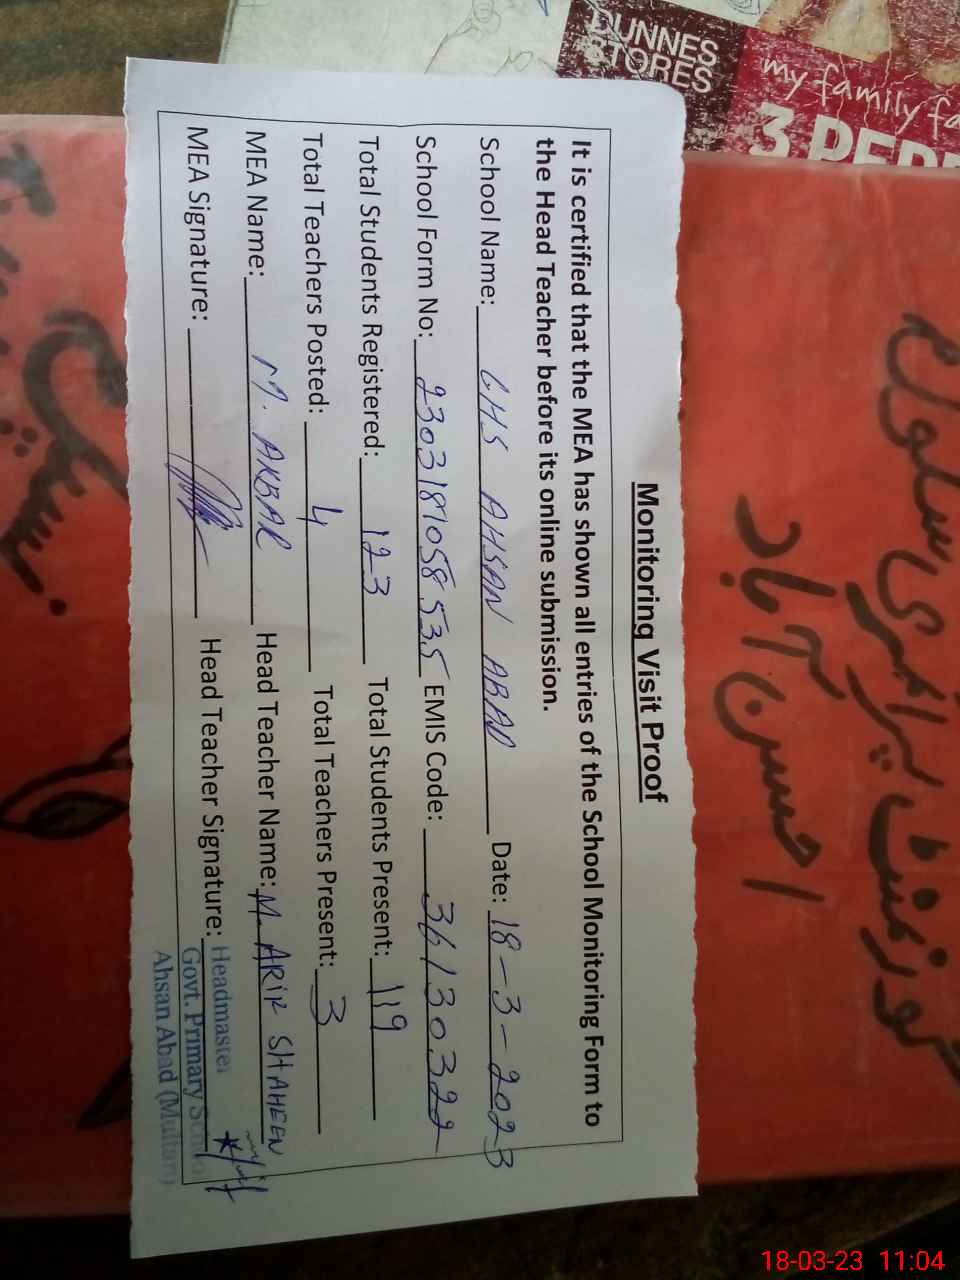 DUNNES
STORES
my family fa
3 PER
Monitoring Visit Proof
It is certified that the MEA has shown all entries of the School Monitoring Form to
the Head Teacher before its online submission.
School Name: GHS AHSAN ABAD Date: 18-3-2023
School Form No: 2303181058535 EMIS Code: 36130322
Total Students Registered: 123 Total Students Present: 119
Total Teachers Posted: 4 Total Teachers Present: 3
MEA Name: M. AKBAR Head Teacher Name: M. ARIF SHAHEEN
MEA Signature: Head Teacher Signature:
Headmaster
Govt. Primary School
Ahsan Abad (Multan)
گورنمنٹ پرائمری سکول
احسن آباد
18-03-23 11:04